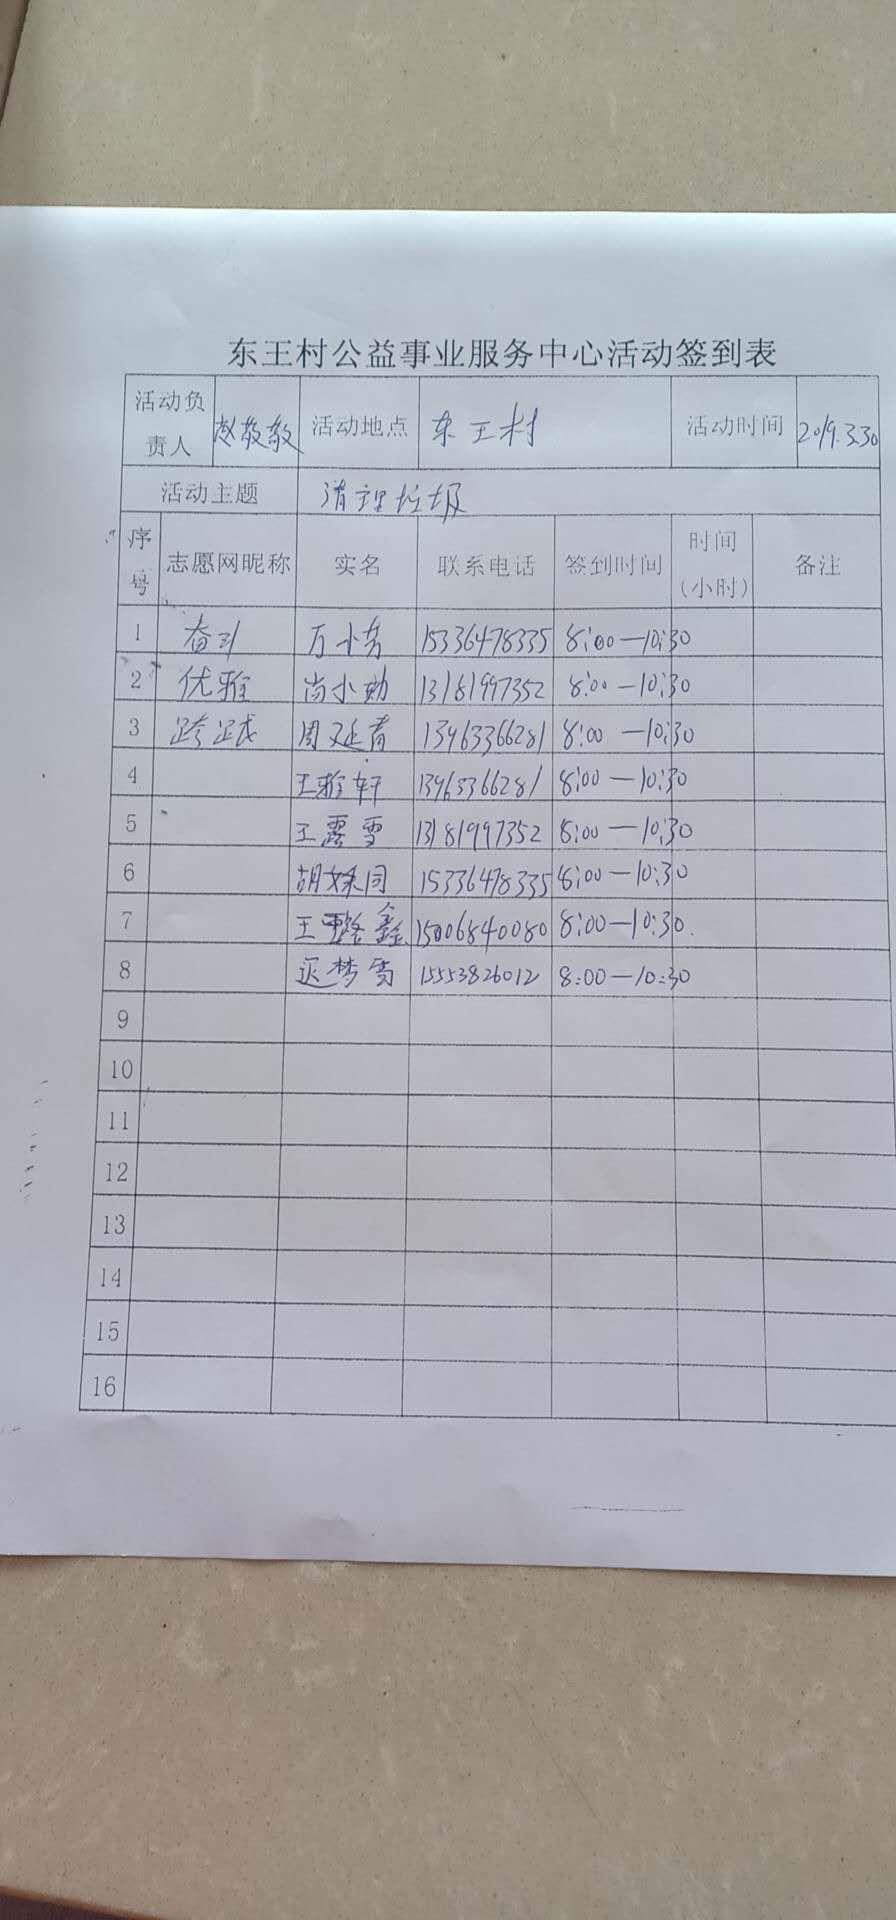 东王村公益事业服务中心活动签到表
活动负责人 赵敬敬 活动地点 东王村 活动时间 2019.3.30
活动主题 清理垃圾
序号 志愿网昵称 实名 联系电话 签到时间 时间（小时） 备注
1 奋斗 万小芳 15336478335 8:00—10:30
2 优雅 尚小勤 13181997352 8:00—10:30
3 跨越 周延青 13963366281 8:00—10:30
4 王雅轩 13963366281 8:00—10:30
5 王露雪 13181997352 8:00—10:30
6 胡姝同 15336478335 8:00—10:30
7 王 鑫 15006840080 8:00—10:30.
8 梦雪 15553826012 8:00—10:30
9
10
11
12
13
14
15
16